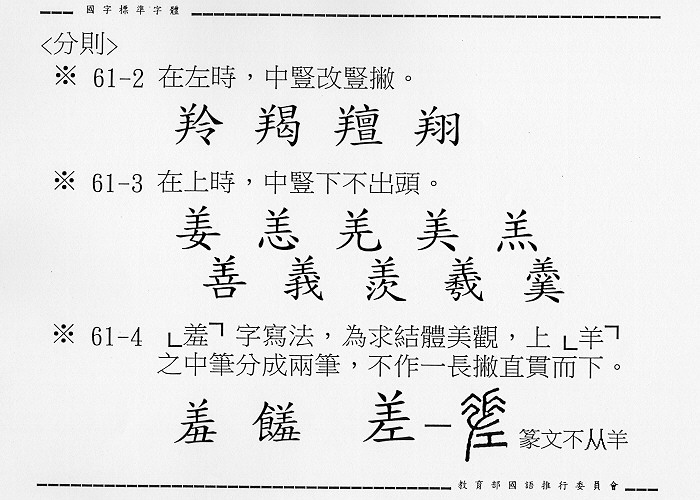 國字標準字體
<分則>
※ 61-2 在左時，中豎改豎撇。
羚 羯 羶 翔
※ 61-3 在上時，中豎下不出頭。
姜 恙 羌 美 羔
善 義 羨 羲 羹
※ 61-4 「羞」字寫法，為求結體美觀，上「羊」
之中筆分成兩筆，不作一長撇直貫而下。
羞 饈 差— 篆文不从羊
教育部國語推行委員會